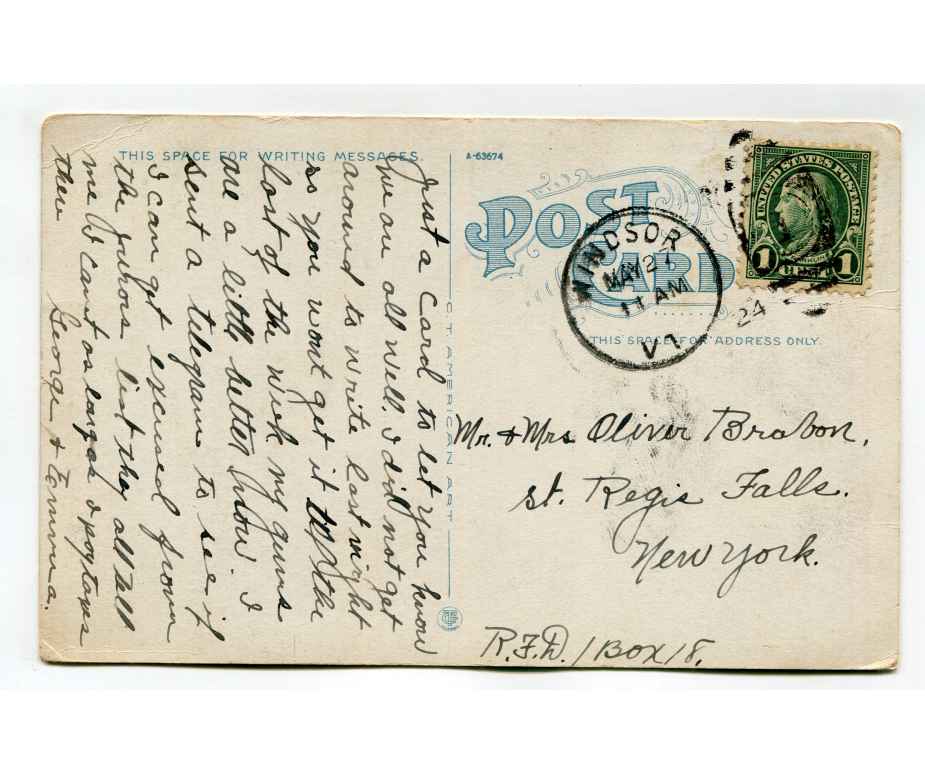 THIS SPACE FOR WRITING MESSAGES.
A-63674
POST
CARD
THIS SPACE FOR ADDRESS ONLY.
C.T. AMERICAN ART
UNITED STATES POSTAGE
FRANKLIN
1 CENT 1
WINDSOR
MAY 27
11 AM
VT
24
Just a card to let you know
we are all well. I did not get
around to write last night
so you wont get it the
last of the week my gums
are a little better know I
sent a telegram to see if
I can get excused from
the jurors list they all tell
me I cant as long as I pay taxes
then
George & Emma.
Mr. & Mrs Oliver Brabon,
St. Regis Falls.
New York.
R.F.D. 1 Box 18.